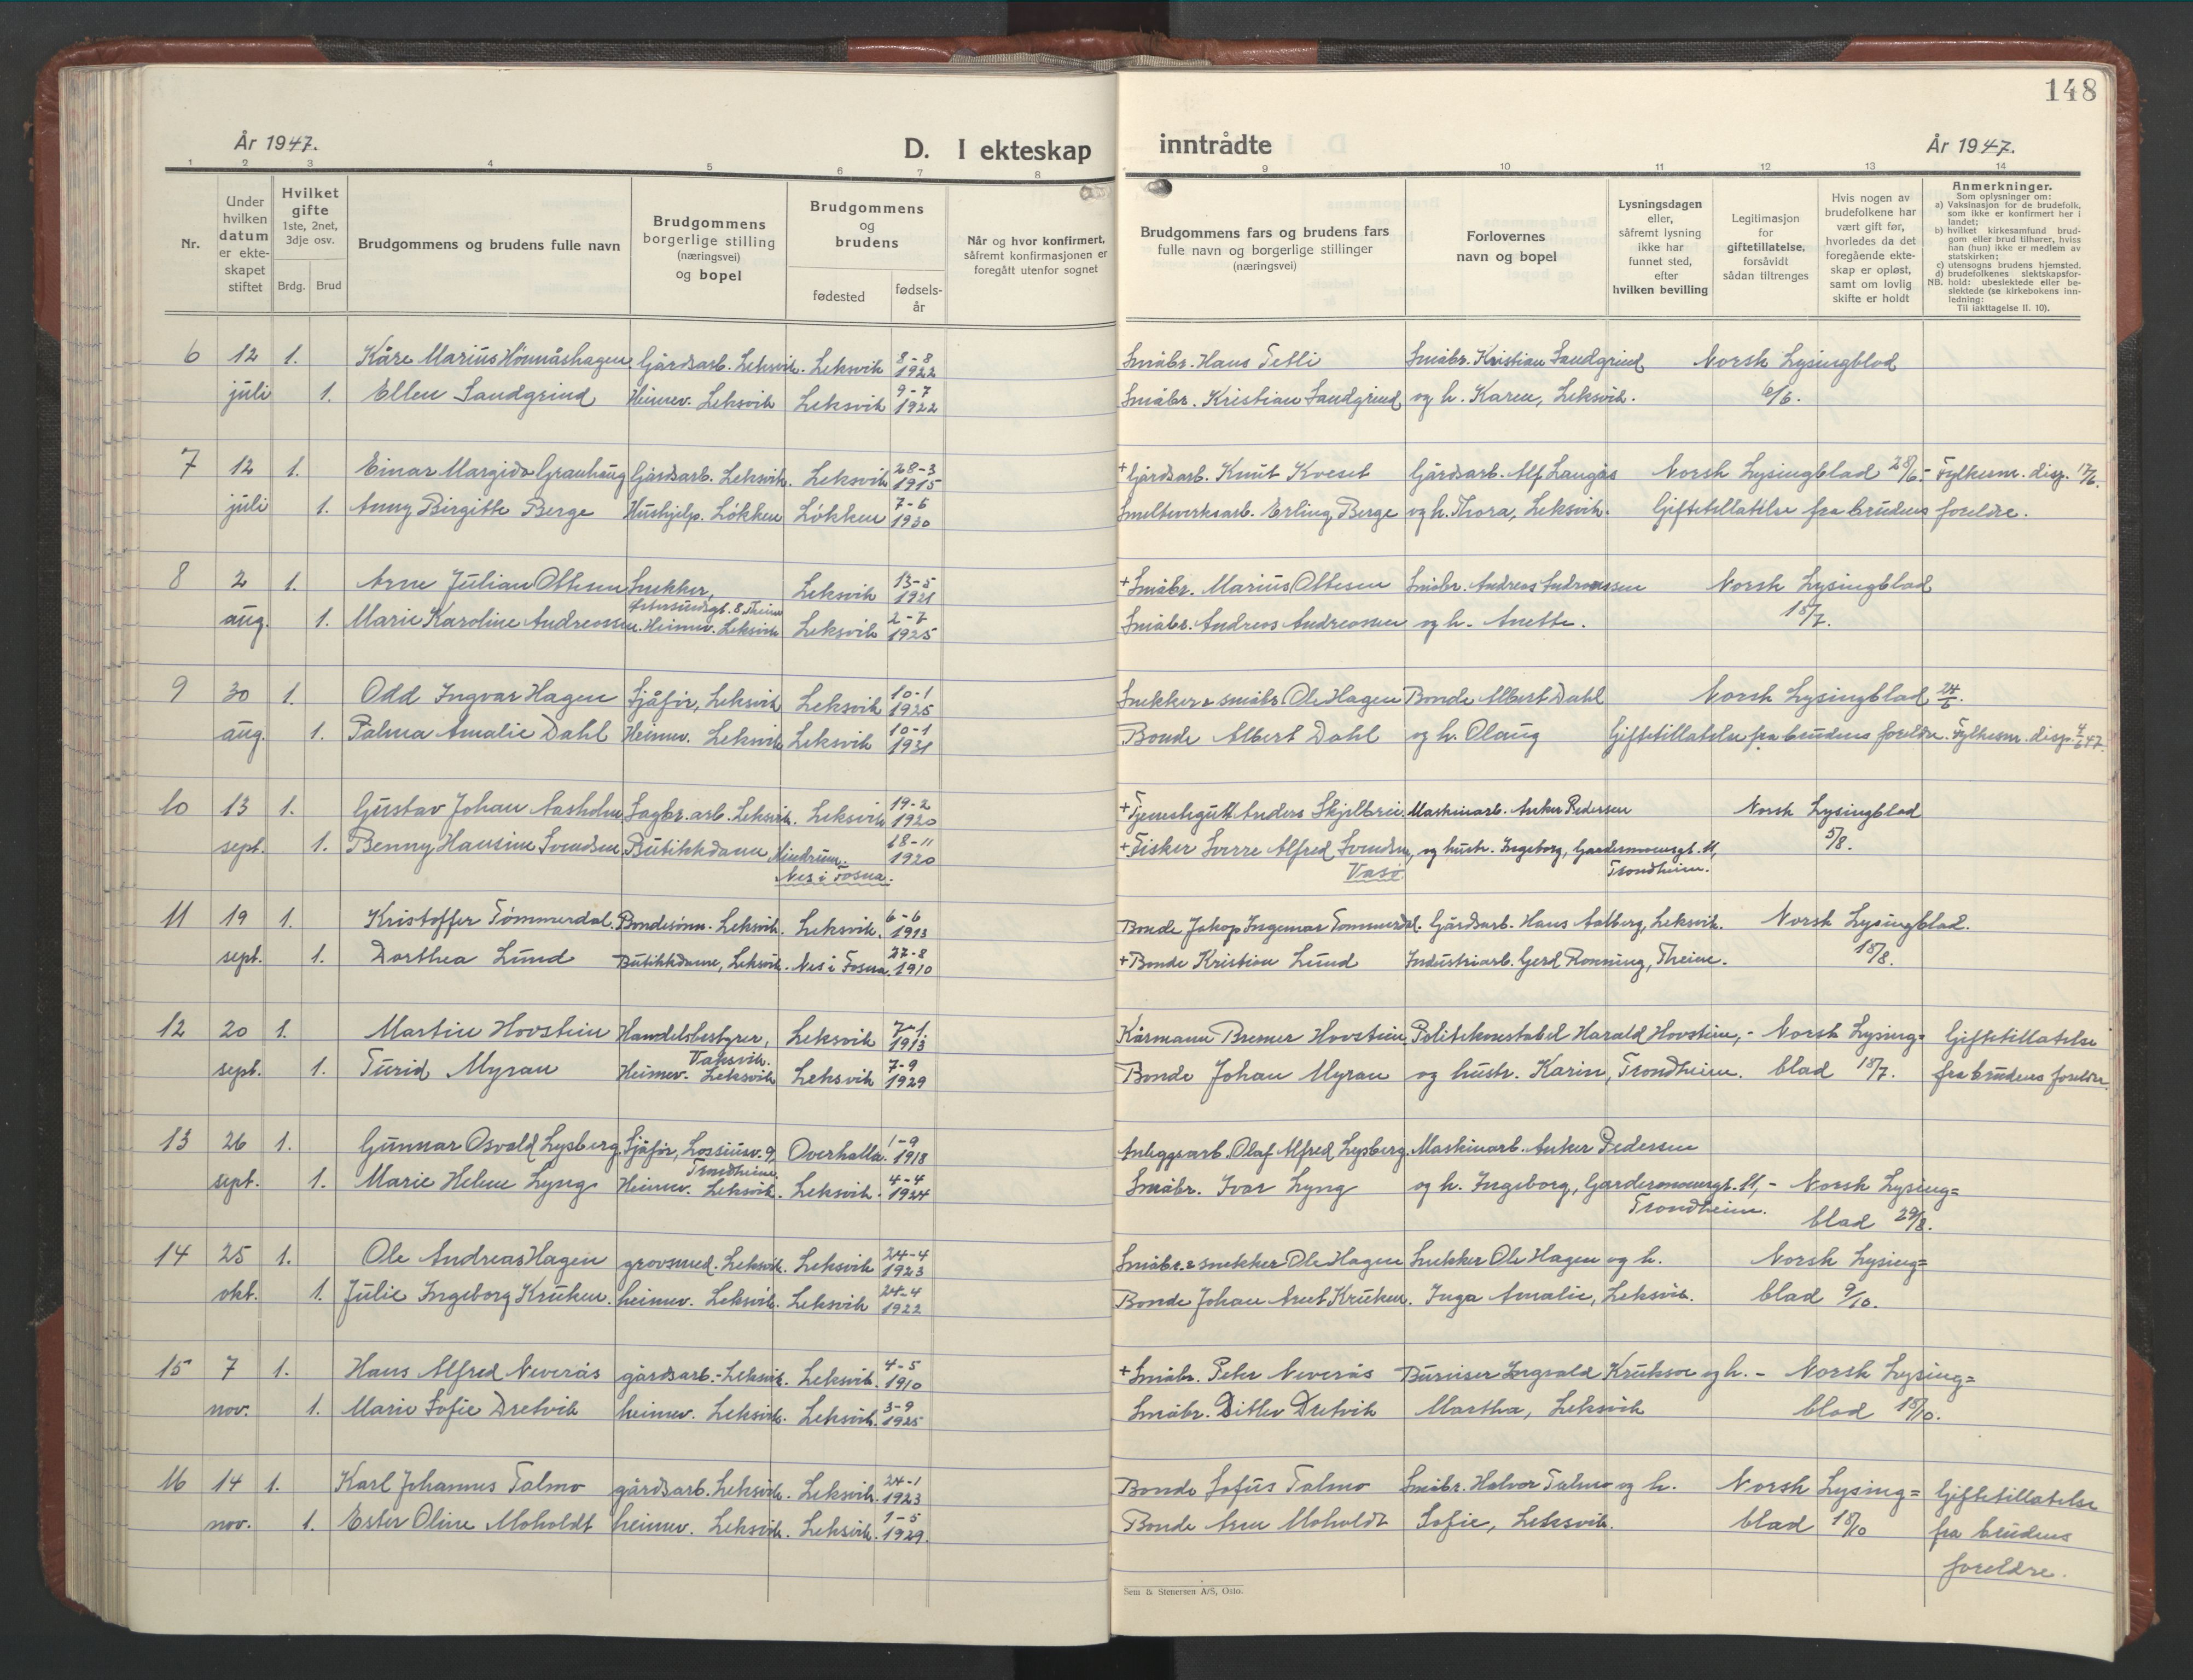 148
År 1947.
D. I ekteskap inntrådte
År 1947.
1 2 3 4 5 6 7 8 9 10 11 12 13 14
Nr.
Under hvilken datum er ekteskapet stiftet
Hvilket gifte 1ste, 2net, 3dje osv.
Brdg. Brud
Brudgommens og brudens fulle navn
Brudgommens borgerlige stilling (næringsvei) og bopel
Brudgommens og brudens
fødested
fødselsår
Når og hvor konfirmert, såfremt konfirmasjonen er foregått utenfor sognet
Brudgommens fars og brudens fars fulle navn og borgerlige stillinger (næringsvei)
Forlovernes navn og bopel
Lysningsdagen eller, såfremt lysning ikke har funnet sted, efter hvilken bevilling
Legitimasjon for giftetillatelse, forsåvidt sådan tiltrenges
Hvis nogen av brudefolkene har vært gift før, hvorledes da det foregående ekteskap er opløst, samt om lovlig skifte er holdt
Anmerkninger.
Som oplysninger om:
a) Vaksinasjon for de brudefolk, som ikke er konfirmert her i landet;
b) hvilket kirkesamfund brudgom eller brud tilhører, hviss han (hun) ikke er medlem av statskirken;
c) utensogns brudens hjemsted.
d) brudefolkenes slektskapsforhold: ubeslektede eller beslektede (se kirkebokens innledning:
NB. Til iakttagelse II. 10).
6 12 1. Kåre Marius Hömmåshagen Gårdsarb. Leksvik. Leksvik 8-8 1922 Småbr. Hans Tetli Småbr. Kristian Sandgrind Norsk Lysingblad
juli 1. Ellen Sandgrind Heimev. Leksvik Leksvik 9-7 1922 Småbr. Kristian Sandgrind og h. Karen, Leksvik. 6/6.
7 12 1. Einar Margido Granhaug Gårdsarb. Leksvik. Leksvik 28-3 1915 + Gårdsarb. Knut Kveset Gårdsarb. Alf Langås Norsk Lysingblad 28/6. - Fylkesm. disp. 17/6.
juli 1. Anny Birgitte Berge Hushjelp. Lökken Lökken 7-6 1930 Smelteverksarb. Erling Berge og h. Thora, Leksvik. Giftetillatelse fra brudens foreldre.
8 2 1. Arne Julian Ottesen Snekker, Leksvik 13-5 1921 + Småbr. Marius Ottesen Småbr. Andreas Andreassen Norsk Lysingblad
Østersundsgt. 8 Theim
aug. 1. Marie Karoline Andreassen. Heimev. Leksvik Leksvik 2-7 1925 Småbr. Andreas Andreassen og h. Anette. 18/7.
9 30 1. Odd Ingvar Hagen Sjåför, Leksvik Leksvik 10-1 1925 Snekker & småbr. Ole Hagen Bonde Albert Dahl Norsk Lysingblad 24/6.
aug. 1. Palma Amalie Dahl Heimev. Leksvik Leksvik 10-1 1931 Bonde Albert Dahl og h. Olaug Giftetillatelse fra brudens foreldre. Fylkesm. disp. 4/6 47.
10 13 1. Gustav Johan Aasholm Sagbr. arb. Leksvik. Leksvik 19-2 1920 + Tjenestegutt Anders Skjelbrei Maskinarb. Anker Pedersen Norsk Lysingblad
sept. 1. Benny Hansine Svendsen Butikkdame Hindrum. 18-11 1920 + Fisker Sverre Alfred Svendsen, og hustr. Ingeborg, Gardemoensgt. 11, 5/8.
Nes i Fosna. Vasö Trondheim.
11 19 1. Kristoffer Tömmerdal. Bondesönn. Leksvik. Leksvik. 6-6 1913 Bonde Jakop Ingemar Tömmerdal. Gårdsarb. Hans Aalberg, Leksvik. Norsk Lysingblad.
sept. 1. Dorthea Lund Butikkdame, Leksvik. Nes i Fosna. 27-8 1910 + Bonde Kristian Lund Industriarb. Gerd Rönning, Theim. 18/8.
12 20 1. Martin Hovstein Handelsbestyrer, Leksvik 7-1 1913 Kårmann Bremer Hovstein Politikonstabel Harald Hovstein, - Norsk Lysing= Giftetillatelse
Vansvik.
sept. 1. Turid Myran Heimev. Leksvik Leksvik 7-9 1929 Bonde Johan Myran og hustr. Karin, Trondheim. blad 18/7. fra brudens foreldre.
13 26 1. Gunnar Osvald Lysberg Sjåför, Lossiusv. 9, Overhalla. 1-9 1918 Anleggsarb. Olaf Alfred Lysberg. Maskinarb. Anker Pedersen
Trondheim
sept. 1. Marie Helene Lyng Heimev. Leksvik. Leksvik. 4-4 1924 Småbr. Ivar Lyng og h. Ingeborg, Gardemoensgt. 11, - Norsk Lysing=
Trondheim. blad 29/8.
14 25 1. Ole Andreas Hagen grovsmed. Leksvik. Leksvik 24-4 1923 Småbr. & snekker Ole Hagen Snekker Ole Hagen og h. Norsk Lysing=
okt. 1. Julie Ingeborg Kruken. heimev. Leksvik. Leksvik 24-4 1922 Bonde Johan Arnt Kruken. Inga Amalie, Leksvik. blad 9/10.
15 7 1. Hans Alfred Neverås gårdsarb. - Leksvik. Leksvik. 4-5 1910 + Småbr. Peter Neverås Bureiser Ingvald Kruksve og h. - Norsk Lysing=
nov. 1. Marie Sofie Dretvik heimev. Leksvik. Leksvik. 3-9 1925 Småbr. Ditlev Dretvik Martha, Leksvik blad 18/10.
16 14 1. Karl Johannes Talmo gårdsarb. Leksvik. Leksvik. 24-1 1923 Bonde Sofus Talmo Småbr. Halvor Talmo og h. Norsk Lysing= Giftetillatelse
nov. 1. Ester Oline Moholdt heimev. Leksvik. Leksvik. 1-5 1929. Bonde Arne Moholdt Sofie, Leksvik. blad 18/10 fra brudens
foreldre.
Sem & Stenersen A/S, Oslo.